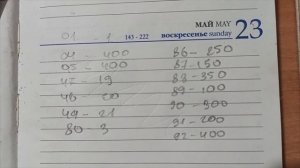 01 - 1
143 - 222
МАЙ MAY
воскресенье sunday
23
04 - 400
05 - 400
47 - 19
48 - 20
49 - 21
80 - 3
86 - 250
87 - 150
88 - 350
89 - 100
90 - 900
91 - 200
92 - 400